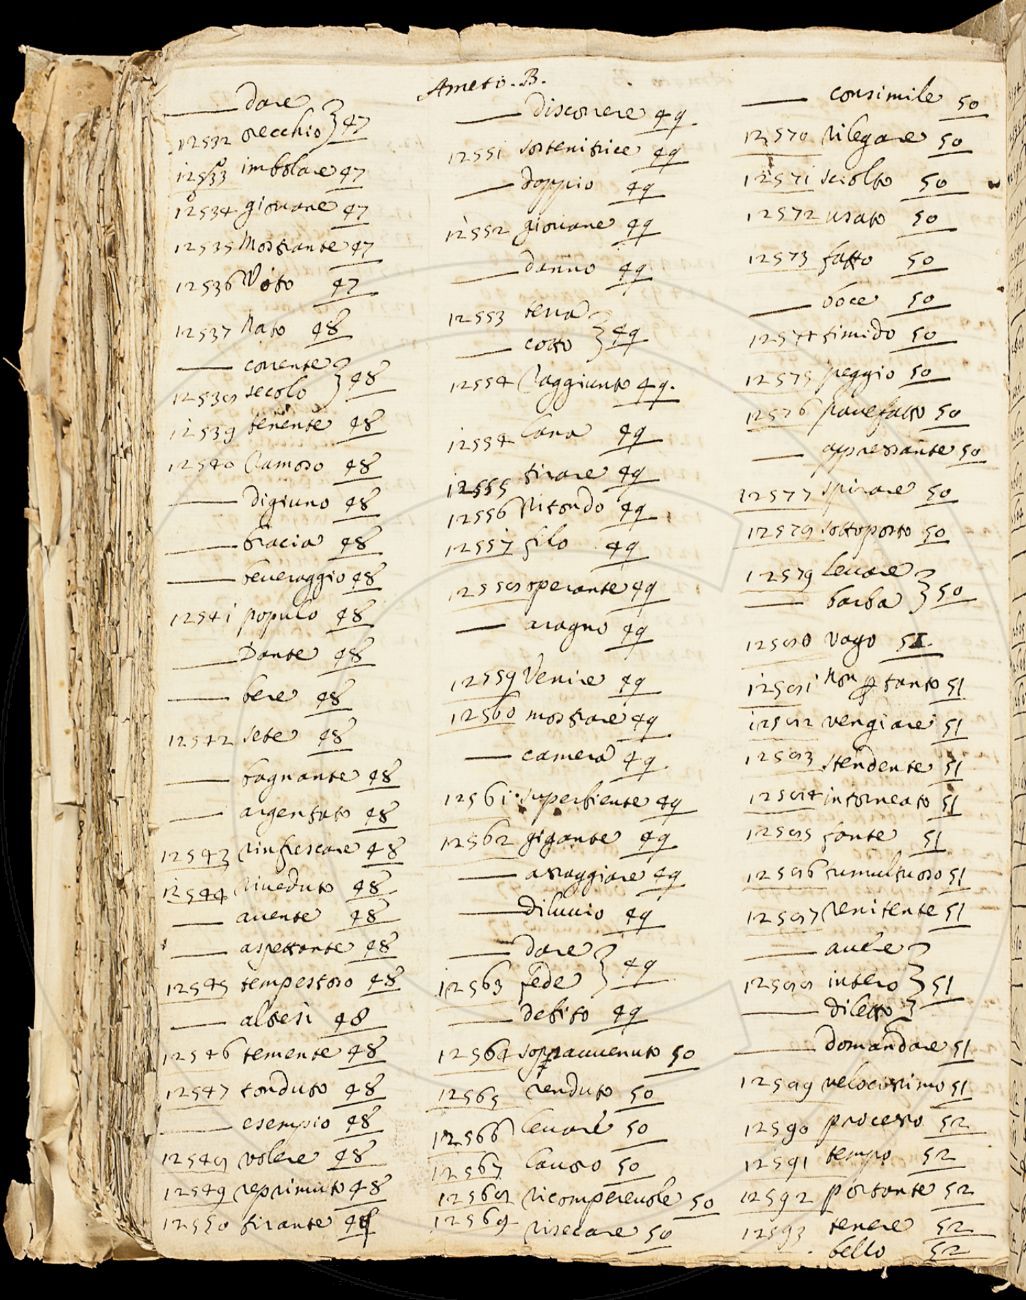 Ameto. B.
—— dare
12532 orecchio } 47
12533 imbolare 47
12534 giovane 47
12535 Mostrante 47
12536 Voto 47
12537 Nato 48
—— corrente
12538 secolo } 48
12539 tenente 48
12540 Ramoso 48
—— digiuno 48
—— bracia 48
—— beveraggio 48
12541 populo 48
—— Dante 48
—— bere 48
12542 sete 48
—— bagnante 48
—— argentato 48
12543 Rinfrescare 48
12544 Riveduto 48
—— avente 48
—— aspettante 48
12545 tempestoso 48
—— altresì 48
12546 temente 48
12547 tonduto 48
—— esempio 48
12548 volere 48
12549 reprimuto 48
12550 tirante 48
—— discorrere 49
12551 sostenitrice 49
—— doppio 49
12552 giovane 49
—— danno 49
12553 terra
—— cotto } 49
12554 Raggiunto 49.
12554 lana 49
12555 tirare 49
12556 Ritondo 49
12557 filo 49
12558 operante 49
—— aragno 49
12559 Venire 49
12560 mostrare 49
—— camera 49
12561 superbiente 49
12562 gigante 49
—— assaggiare 49
—— diluvio 49
—— dare
12563 fede } 49
—— debito 49
12564 sopravvenuto 50
12565 renduto 50
12566 levare 50
12567 lauro 50
12568 ricompensevole 50
12569 risecare 50
—— consimile 50
12570 rilegare 50
12571 sciolto 50
12572 usato 50
12573 fatto 50
—— voce 50
12574 timido 50
12575 peggio 50
12576 pauefatto 50
—— appressante 50
12577 spirare 50
12578 sottoposto 50
12579 levare
—— barba } 50
12580 vago 51.
12581 Non p tanto 51
12582 vengiare 51
12583 stendente 51
12584 intorneato 51
12585 fonte 51
12586 tumultuoso 51
12587 renitente 51
—— avere
12588 intero } 51
—— diletto }
—— domandare 51
12589 velocissimo 51
12590 processo 52
12591 tempo 52
12592 portante 52
12593 tenere 52
bello 52